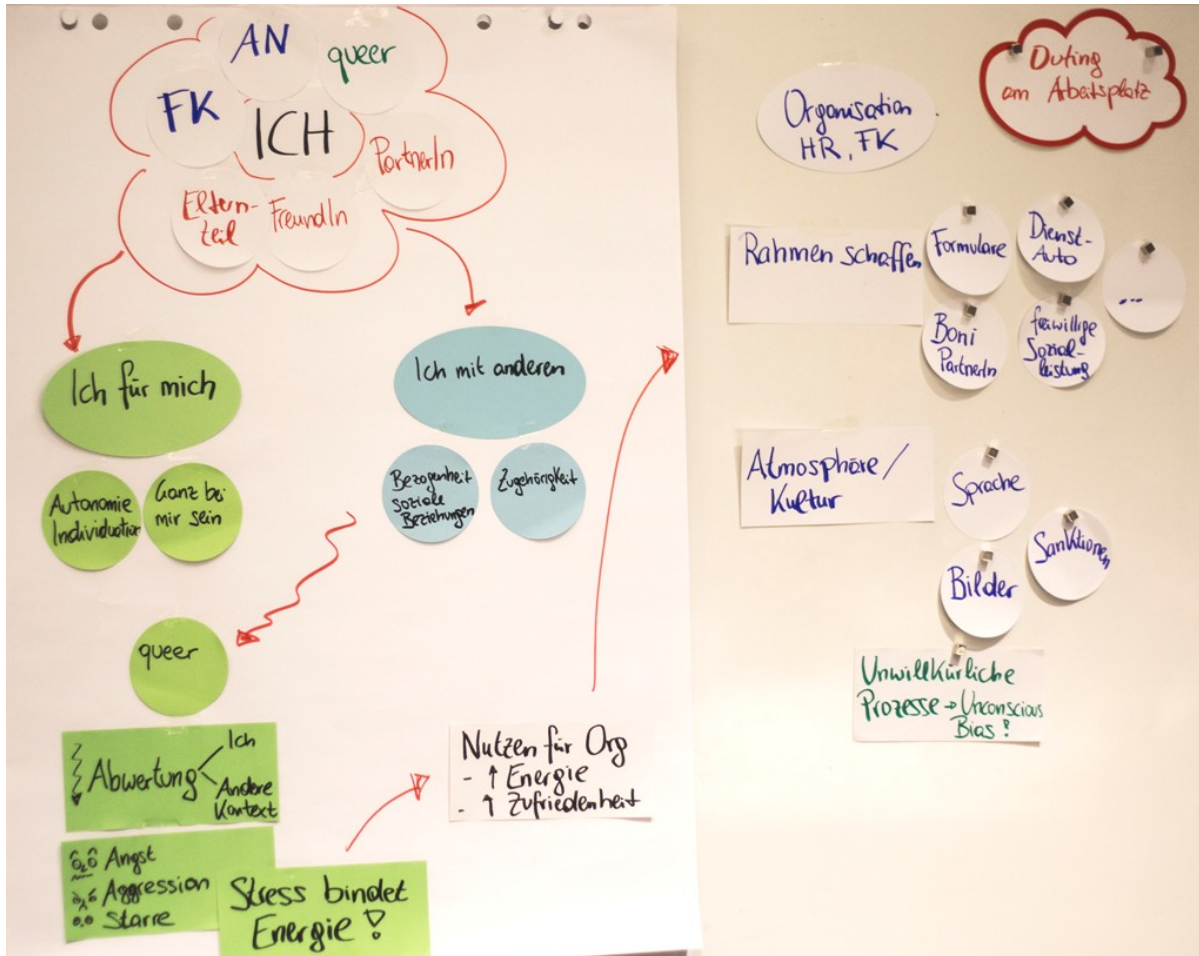 AN
queer
FK
ICH
PartnerIn
Eltern-
teil
FreundIn
Ich für mich
Autonomie
Individuation
Ganz bei
mir sein
Ich mit anderen
Bezogenheit
soziale
Beziehungen
Zugehörigkeit
queer
Abwertung
Ich
Andere
Kontext
Angst
Aggression
Starre
Stress bindet
Energie!
Nutzen für Org
- ↑ Energie
- ↑ Zufriedenheit
Outing
am Arbeitsplatz
Organisation
HR, FK
Rahmen schaffen
Formulare
Dienst-
Auto
...
Boni
PartnerIn
freiwillige
Sozial-
leistung
Atmosphäre/
Kultur
Sprache
Sanktionen
Bilder
Unwillkürliche
Prozesse → Unconscious
Bias!